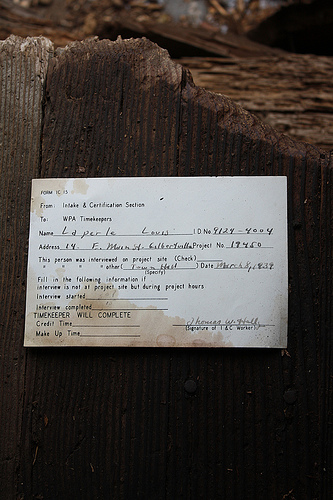 FORM IC 15
From: Intake & Certification Section
To: WPA Timekeepers
Name Laperle Louis I D No 9124-4004
Address 14 E. Main St. Gilbertville Project No. 19460
This person was interviewed on project site (Check)
" " " " other ( Town Hall ) Date March 8, 1939
(Specify)
Fill in the following information if
interview is not at project site but during project hours
Interview started
Interview completed
TIMEKEEPER WILL COMPLETE
Credit Time
Make Up Time
Thomas W.
(Signature of I & C Worker)